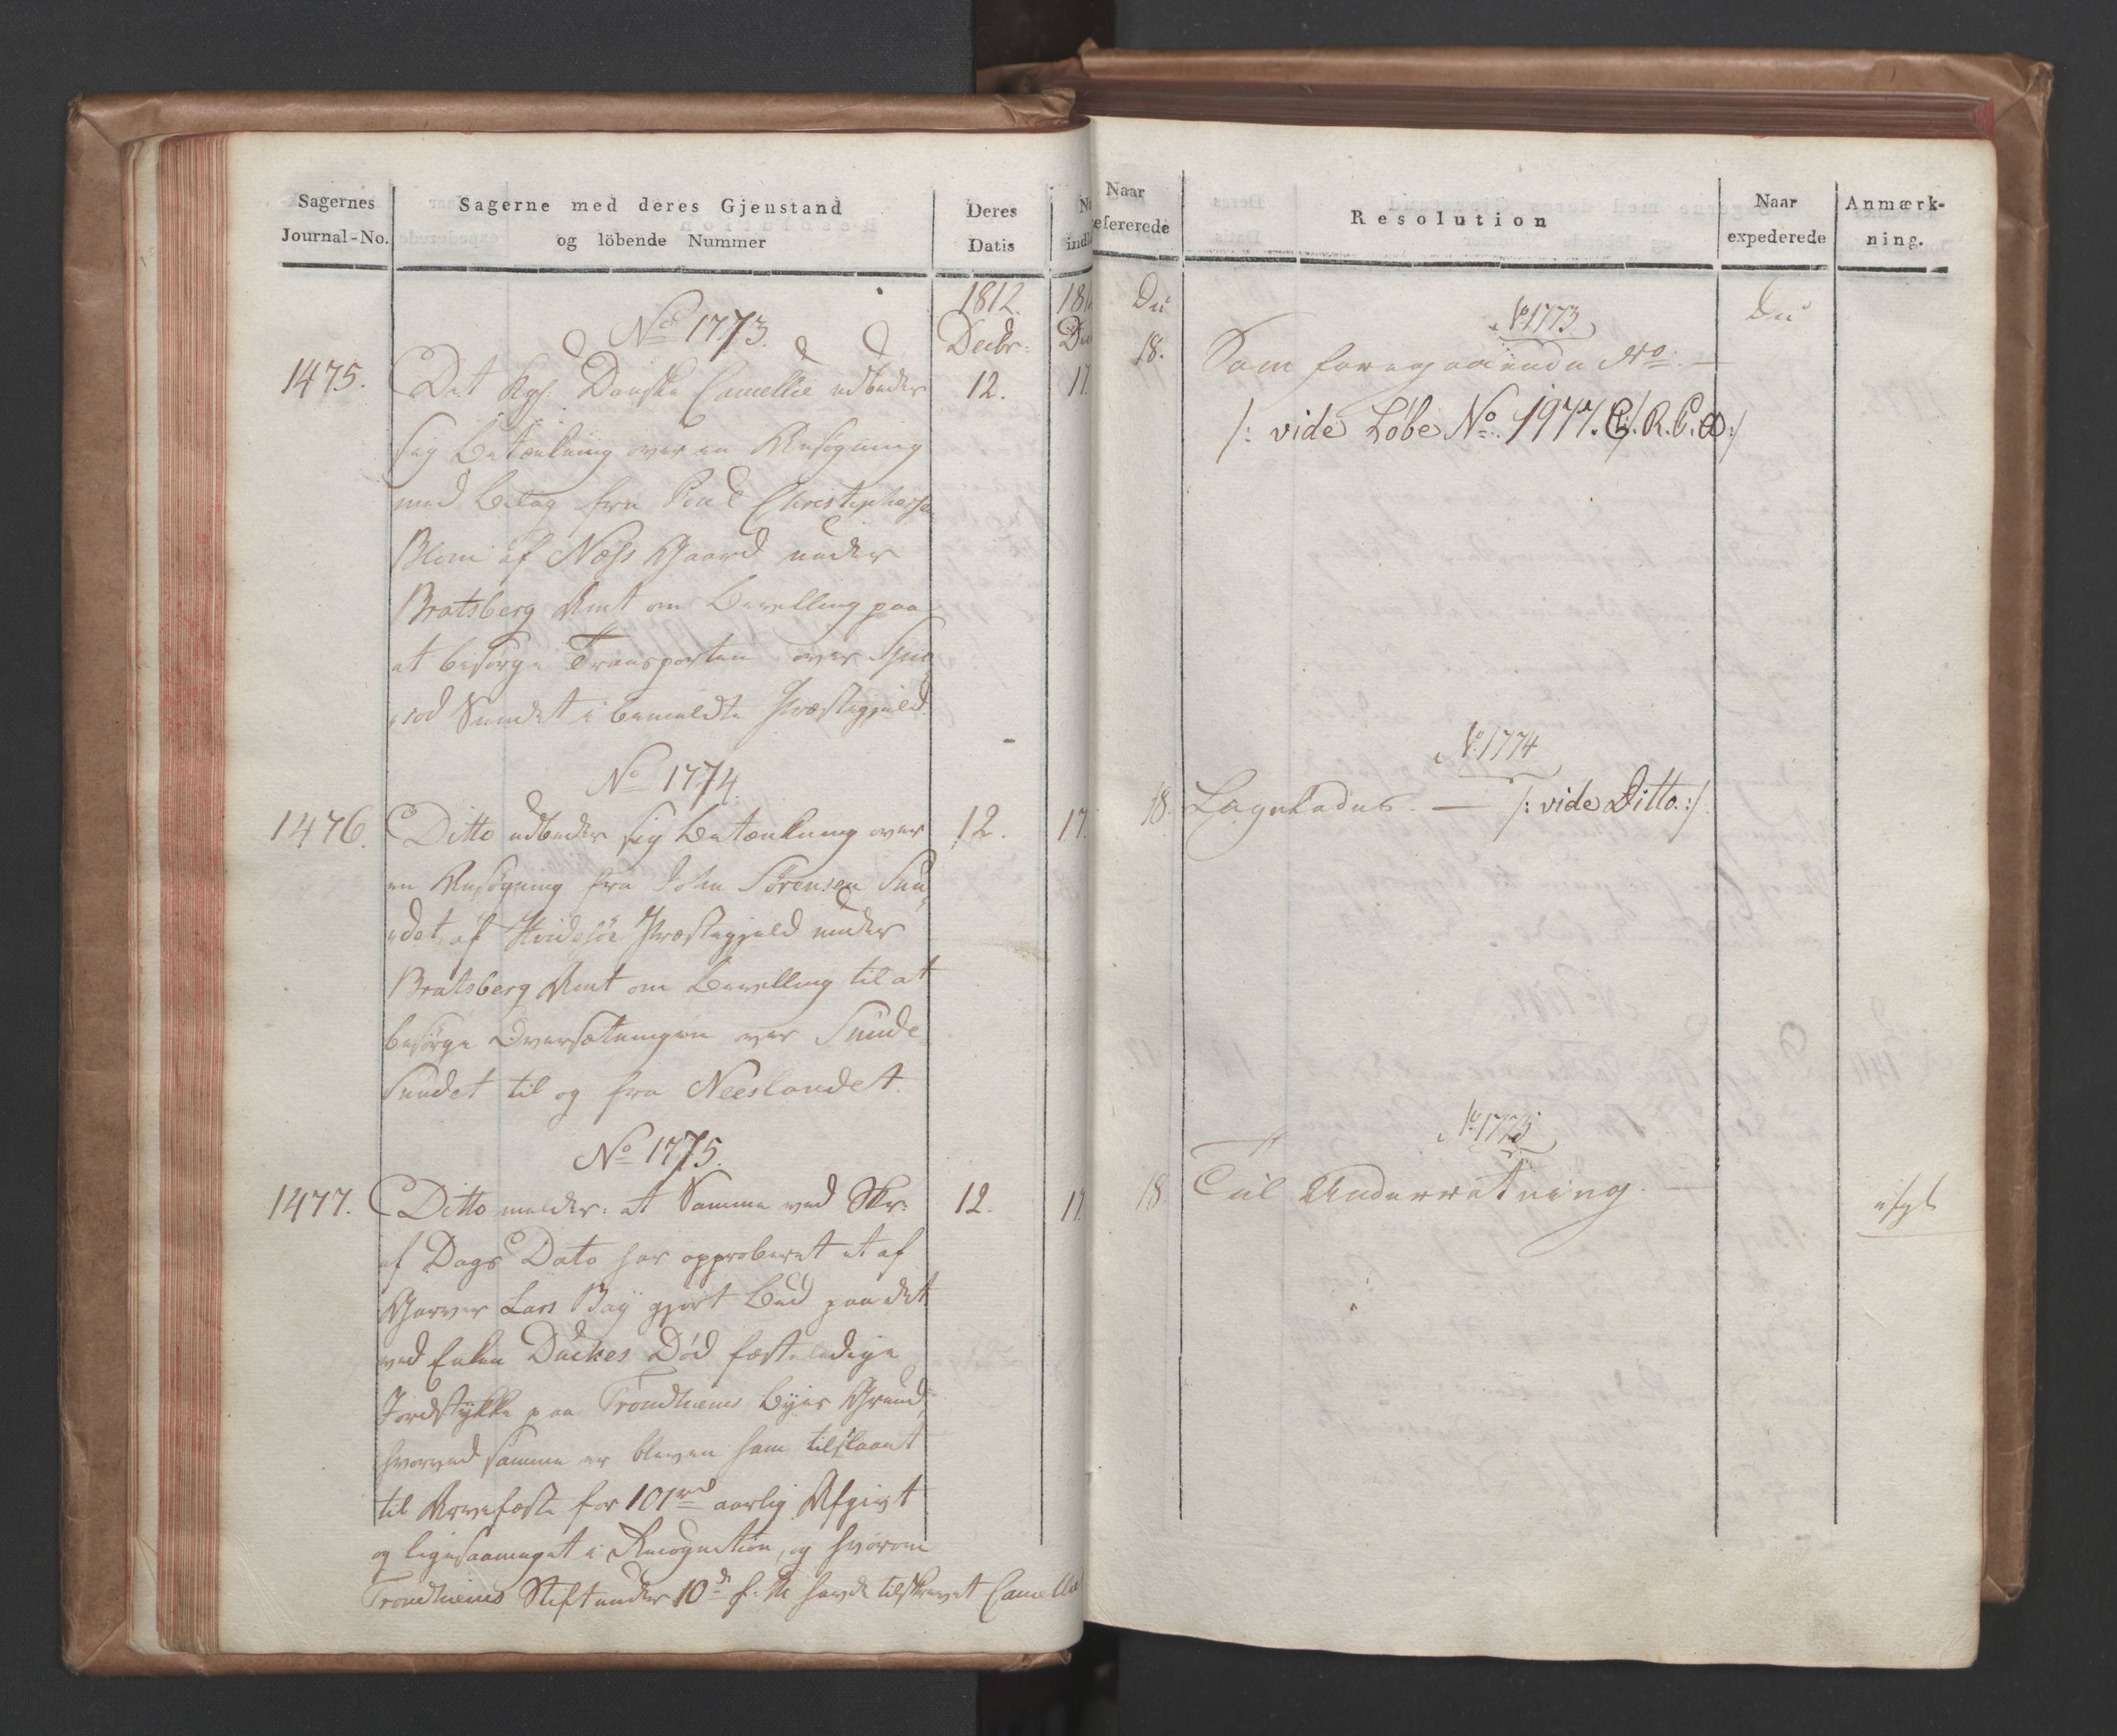 Sagernes
Journal-No.
Sagerne med deres Gjenstand
og löbende Nummer
Deres
Datis
1812.
Decbr:
No 1773.
1475.
Det Kgl: Danske Cancellie udbeder
sig Betænkning over en Ansøgning
med Bilag fra Poul Christophersen
Blom af Næss Gaard under
Bratsberg Amt om Bevilling paa
at besørge Transporten over
Sundet i bemeldte Præstegjeld.
12.
17.
No 1774.
1476.
Ditto udbeder sig Betænkning over
en Ansøgning fra John Sörensen Sun„
„det af Hvidesöe Præstegjeld under
Bratsberg Amt om Bevilling til at
besørge Oversætningen over Sunde
Sundet til og fra Neeslandet.
12.
17.
No 1775.
1477.
Ditto melder: at Samme ved Skr:
af Dags Dato har approberet et af
Garver Lars Bay gjort Bud paa det
ved Enken Dückes Død fæsteledige
Jordstykke paa Trondhiems Byes Grund,
hvorved samme er bleven ham tilslaaet
til Arvefæste for 101 rd aarlig Afgivt
og ligesaameget i Recognition, og hvorom
Trondhiems Stift under 10de f: M: havde tilskrevet Cancelliet
12.
17.
Naar
refererede
Resolution
Naar
expederede
Anmærk-
ning.
No 1773
18.
Som foregaaende No. —
/: vide Löbe No. 1977. R. C. :/
No 1774
18.
Ligeledes. — /: vide Ditto. :/
No 1775
18.
Til Underretning. —